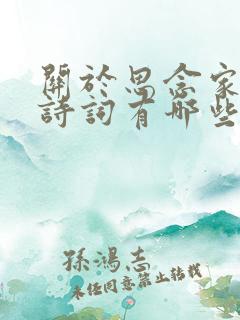 關於思念家
詩詞有哪些
孫鴻志
未经同意禁止转载